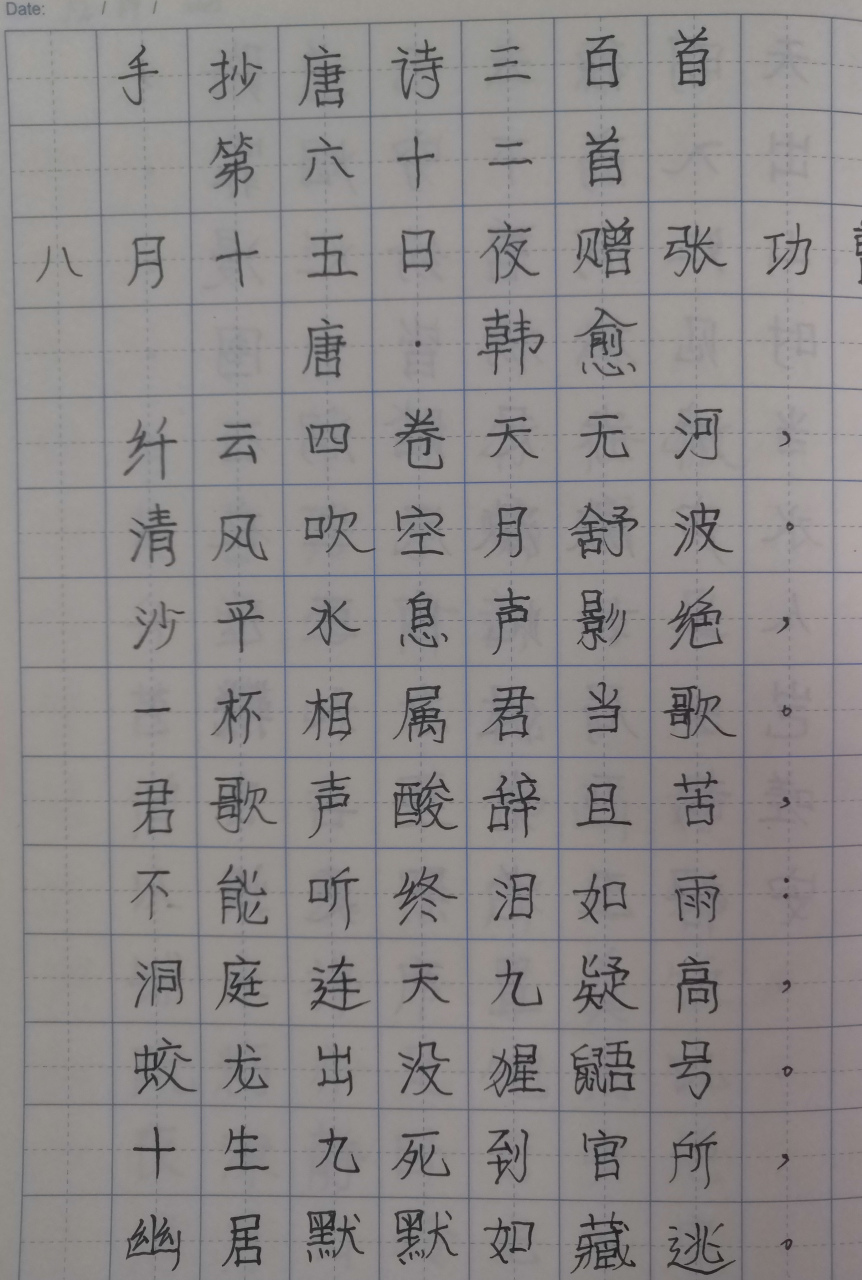 Date: / /
手抄唐诗三百首
第六十二首
八月十五日夜赠张功
唐·韩愈
纤云四卷天无河，
清风吹空月舒波。
沙平水息声影绝，
一杯相属君当歌。
君歌声酸辞且苦，
不能听终泪如雨：
洞庭连天九疑高，
蛟龙出没猩鼯号。
十生九死到官所，
幽居默默如藏逃。